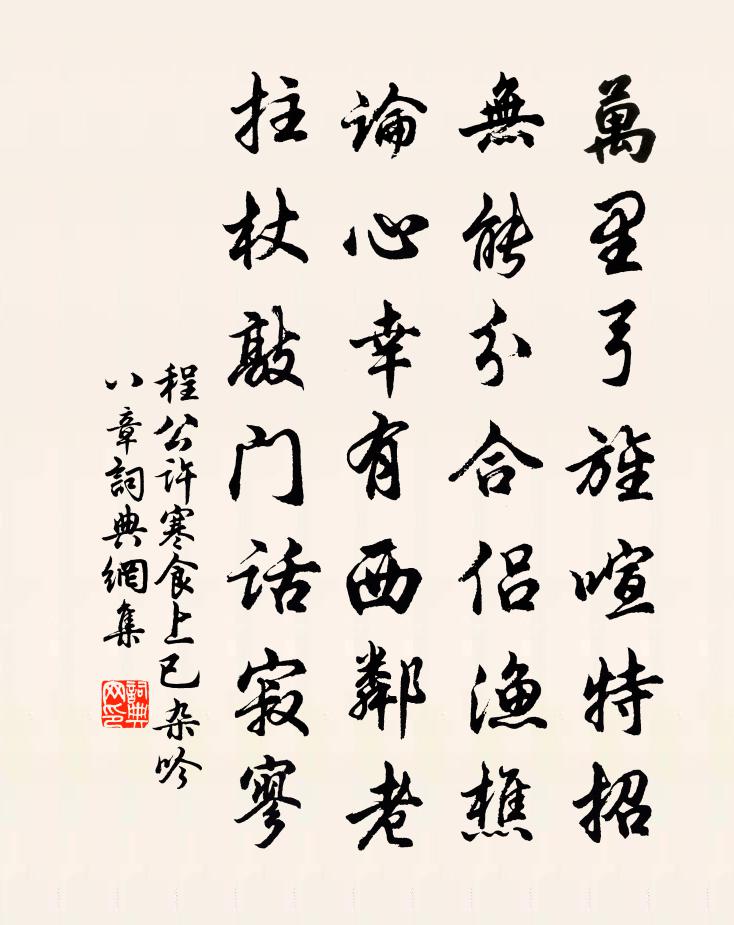 萬里弓旌喧特招
無能分合侣漁樵
論心幸有西鄰老
拄杖敲门话寂寥
程公许寒食上巳杂吟
八章詞典網集
詞典
网印